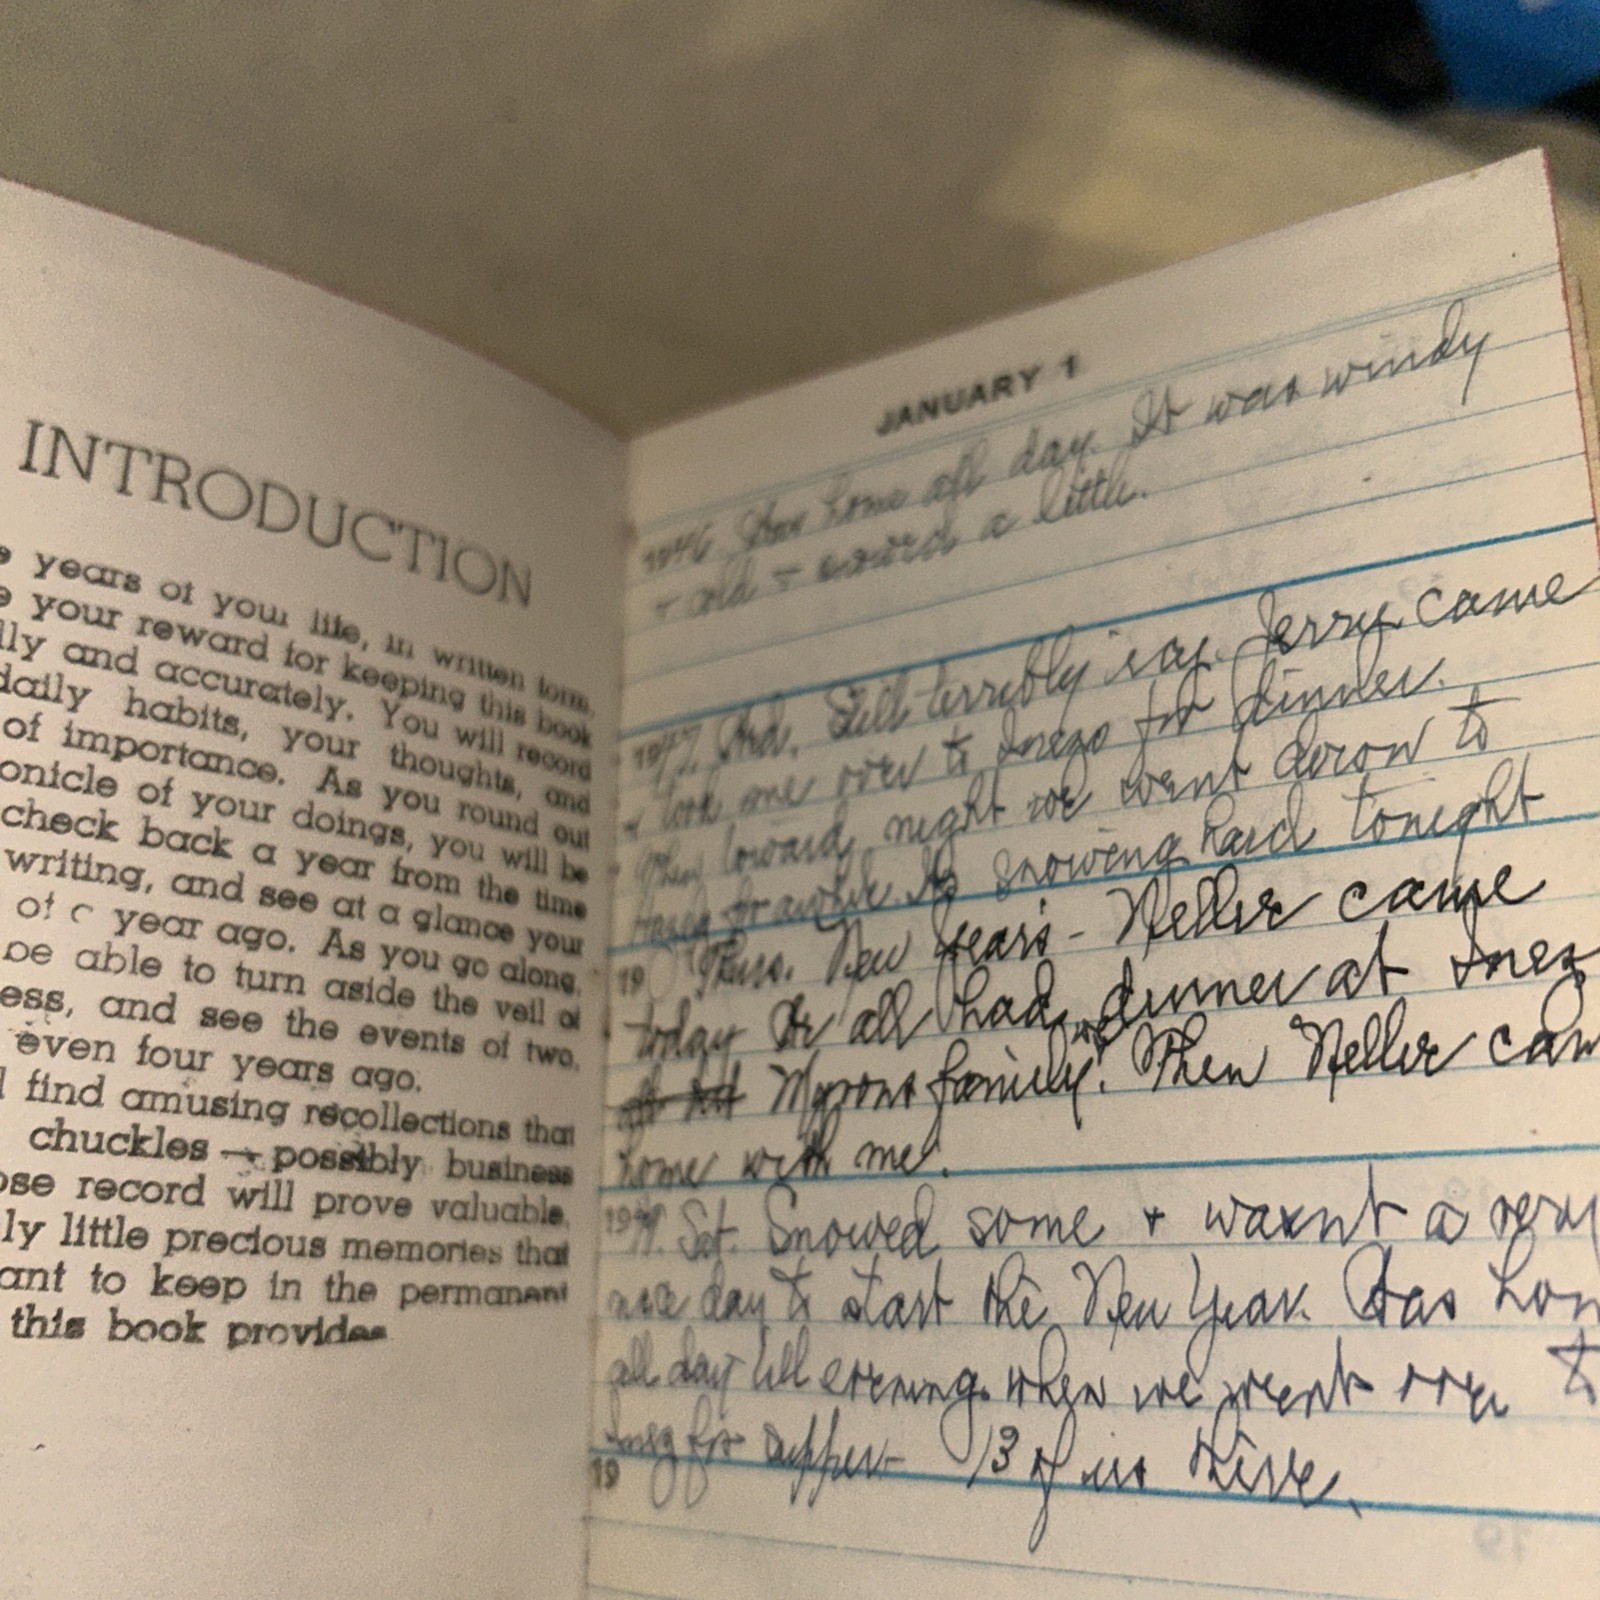 INTRODUCTION
years of your life, in written form,
your reward for keeping this book
lly and accurately. You will record
daily habits, your thoughts, and
of importance. As you round out
onicle of your doings, you will be
check back a year from the time
writing, and see at a glance your
of year ago. As you go along,
be able to turn aside the veil of
ess, and see the events of two,
even four years ago.
find amusing recollections that
chuckles — possibly business
ose record will prove valuable,
ly little precious memories that
ant to keep in the permanent
this book provides
JANUARY 1
1946. Was home all day. It was windy
+ cold + a little.
1947. Wed. Still terribly icy. Jerry came
+ took me over to Inezs for dinner.
Then toward night we went down to
for awhile. Its snowing hard tonight
19 Thurs. New Years - Nellie came
today We all had dinner at Inez
Myrons family. Then Nellie cam
home with me.
1949. Sat. Snowed some + wasnt a very
nice day to start the New Year. Was hom
all day till evening when we went over to
Inez for supper - 13 of us there.
19